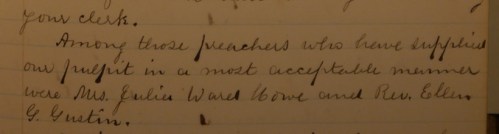 your clerk.
Among those preachers who have supplied
our pulpit in a most acceptable manner
were Mrs. Julia Ward Howe and Rev. Ellen
G. Gustin.